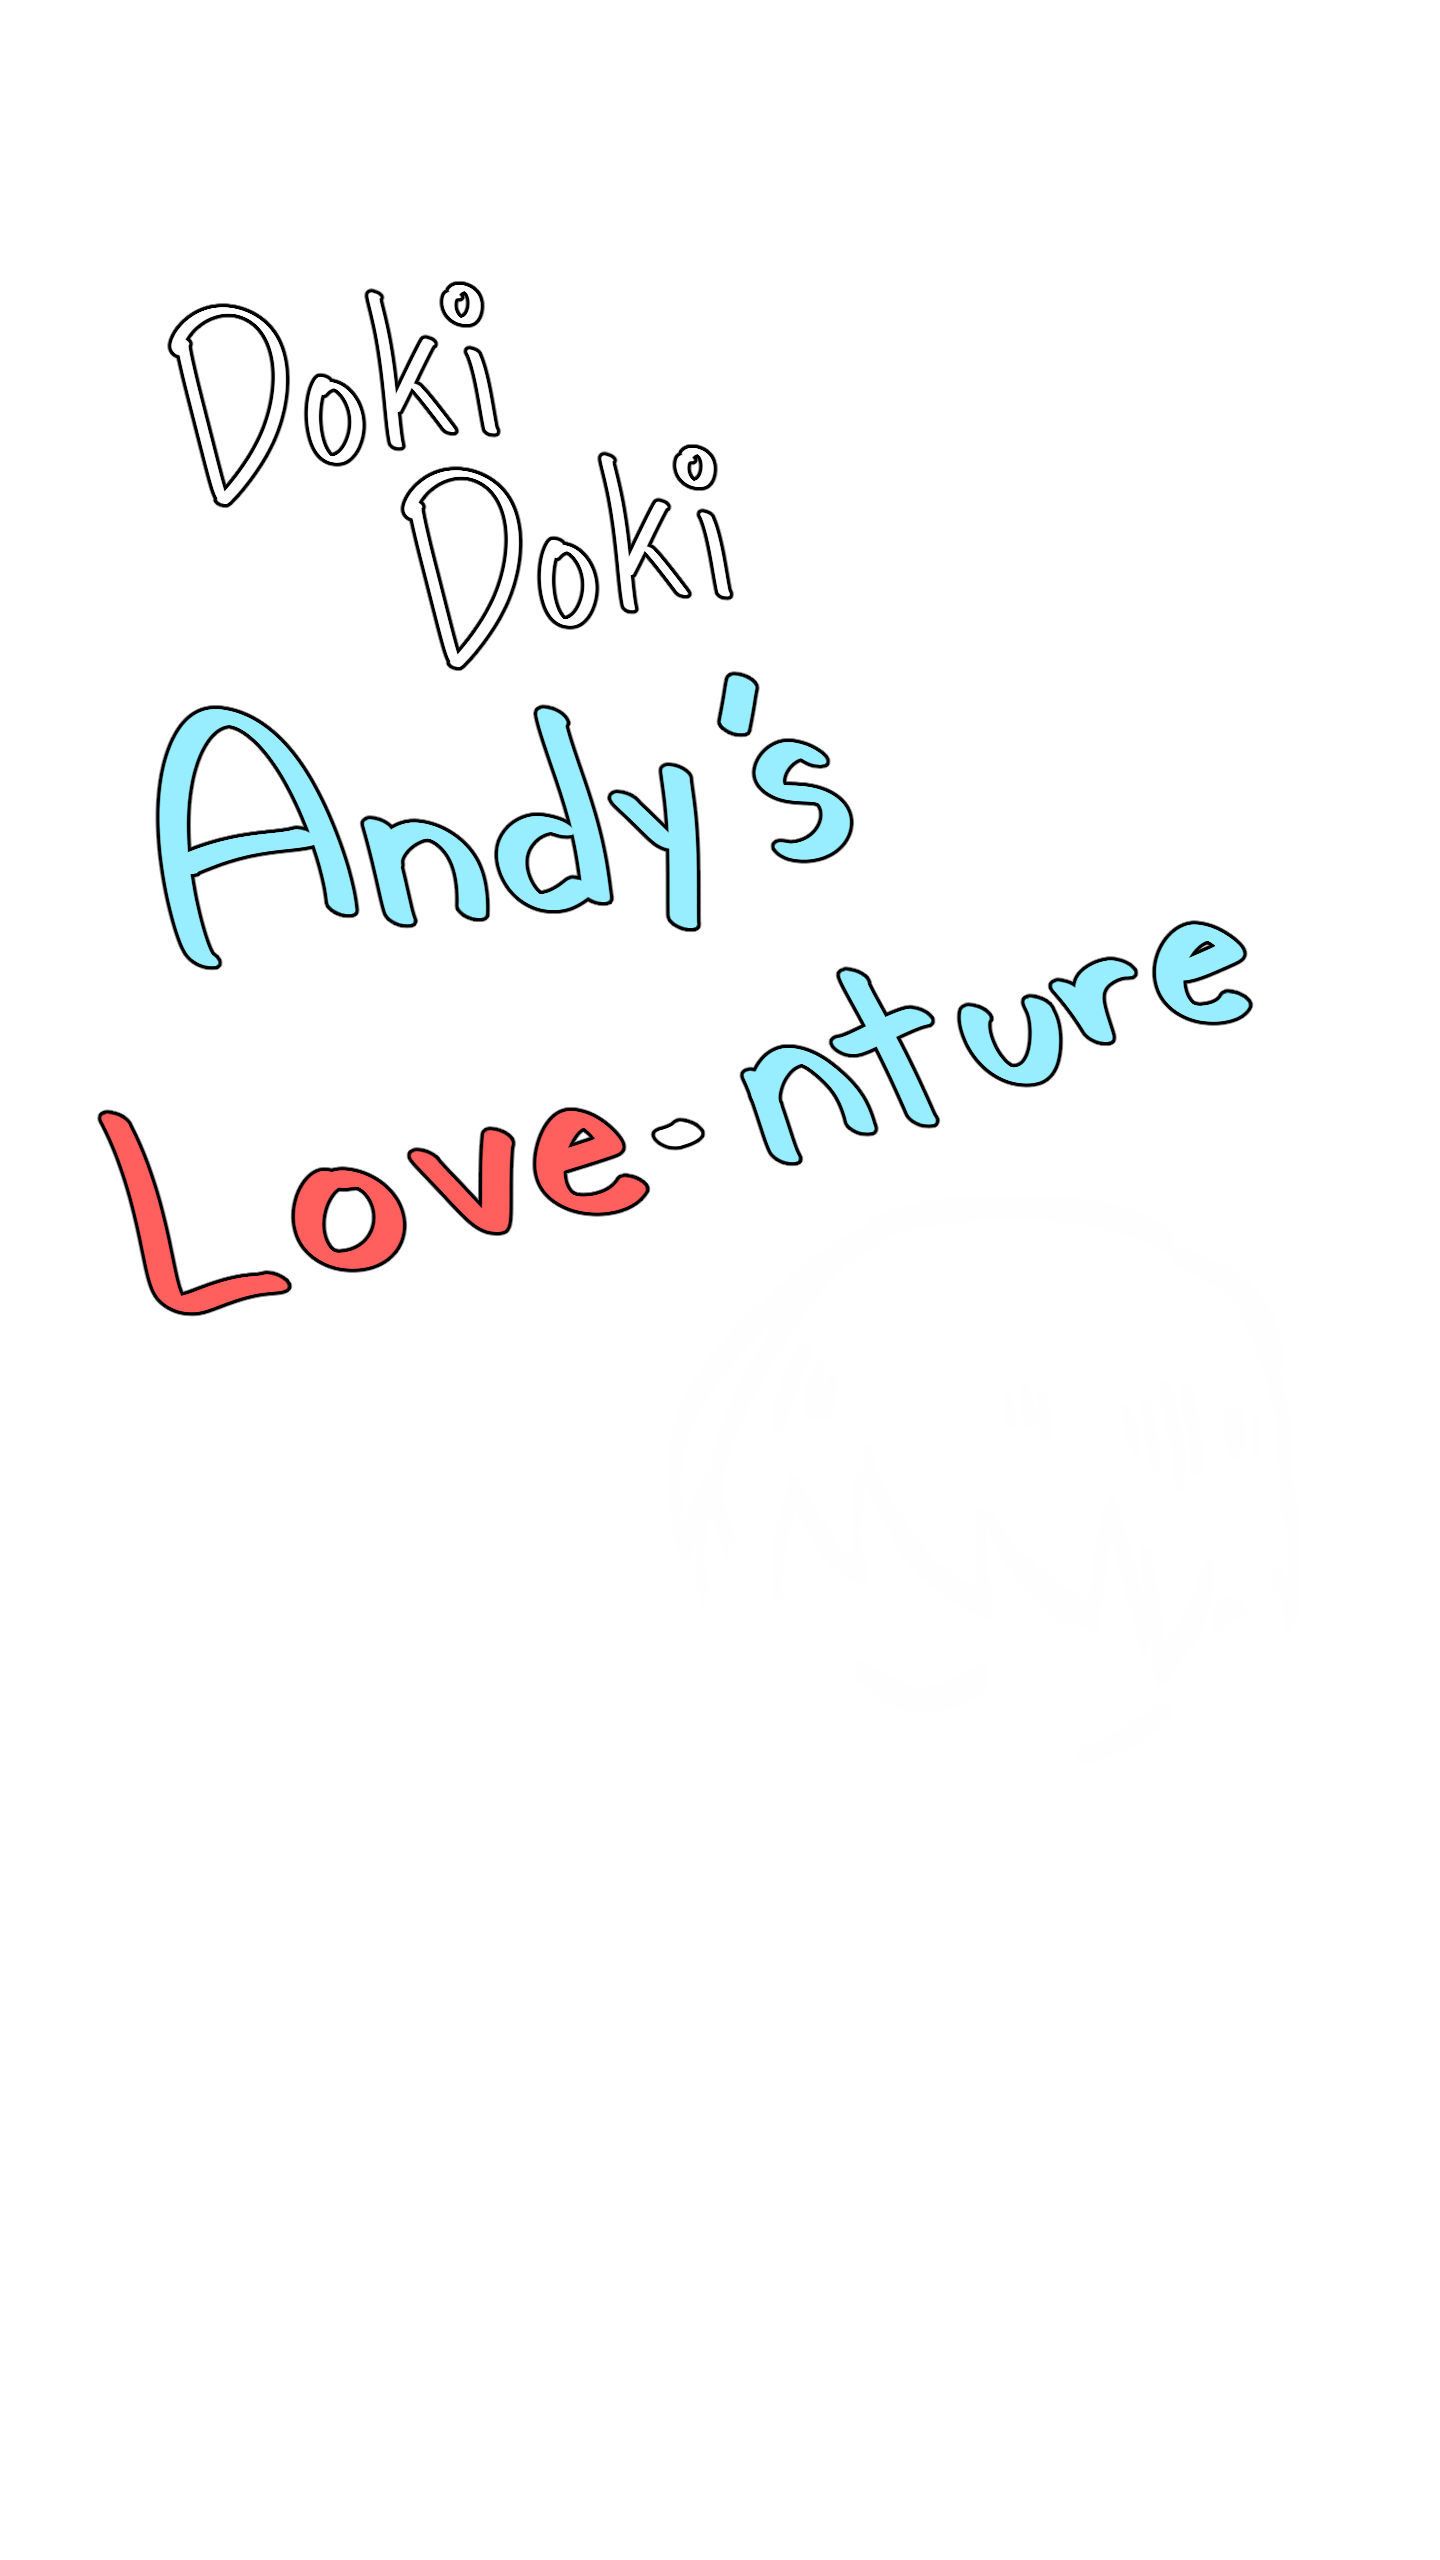 Doki
Doki
Andy's
Love-nture